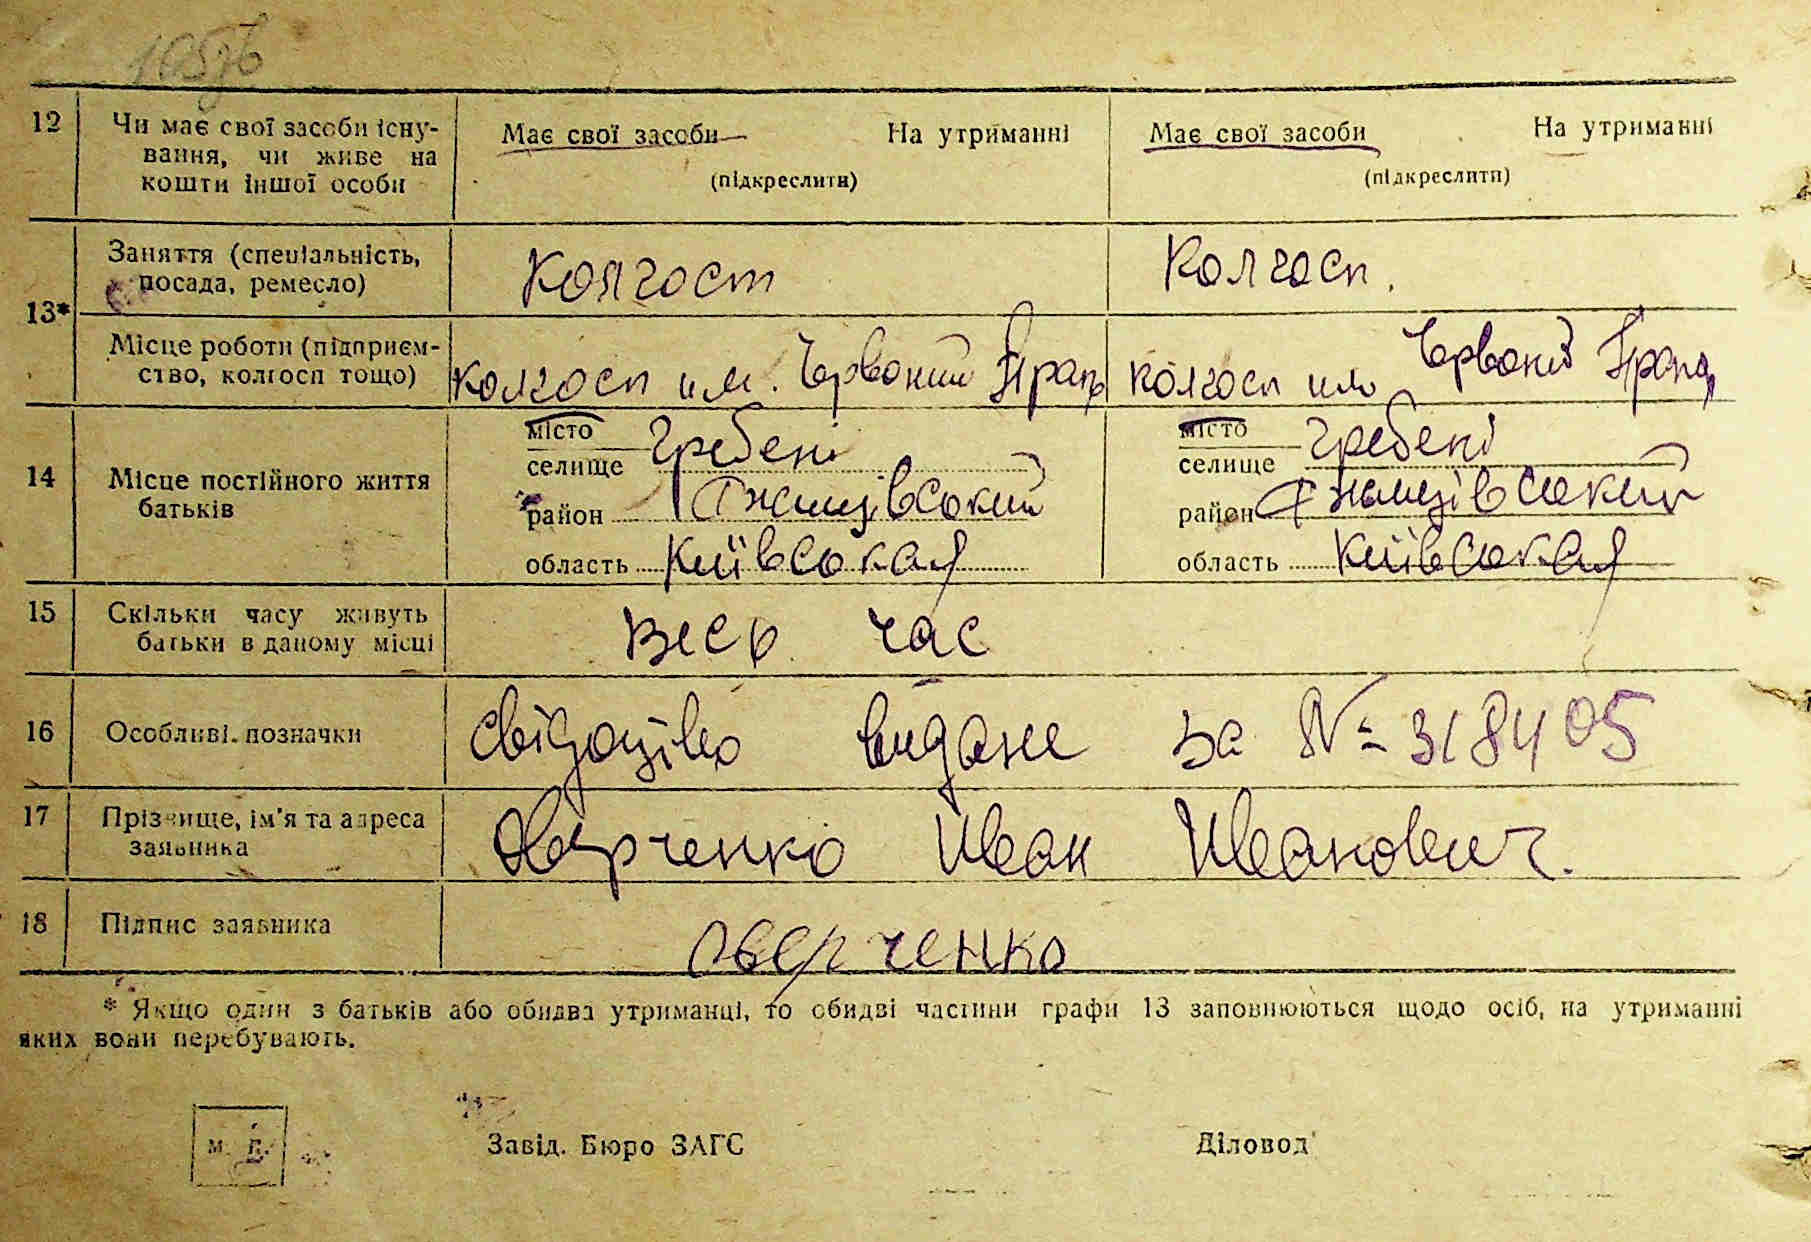 12 Чи має свої засоби існу-
вання, чи живе на
кошти іншої особи
Має свої засоби На утриманні
(підкреслити)
Має свої засоби На утриманні
(підкреслити)
13*
Заняття (спеціальність,
посада, ремесло)
Колгосп
Колгосп.
Місце роботи (підприєм-
ство, колгосп тощо)
Колгосп им. Червоний Прапр
Колгосп им Червоний Прапр
14 Місце постійного життя
батьків
місто
селище Гребені
район Ржищівсокий
область Київсокая
місто
селище Гребені
район Ржищівсокий
область Київсокая
15 Скільки часу живуть
батьки в даному місці
весь час
16 Особливі позначки
свідоцтво видане за № 318405
17 Прізвище, ім'я та адреса
заявника
Оверченко Иван Иванович.
18 Підпис заявника
Оверченко
* Якщо один з батьків або обидва утриманці, то обидві частини графи 13 заповнюються щодо осіб, на утриманні
яких вони перебувають.
м. п.
Завід. Бюро ЗАГС
Діловод